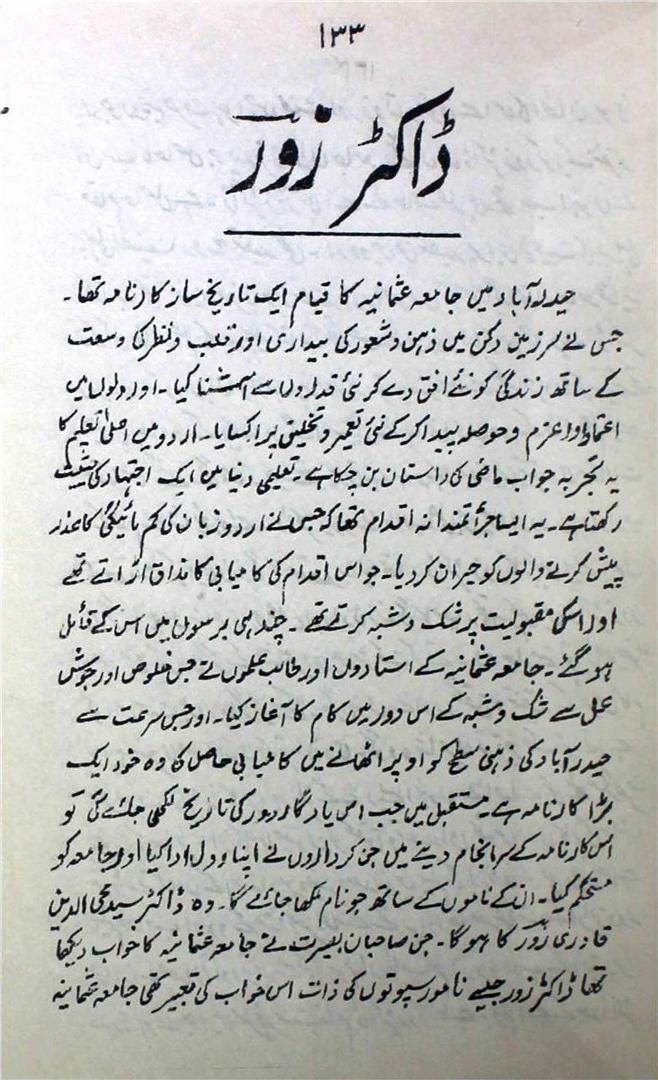 ۱۳۳
ڈاکٹر زورؔ
حیدرآباد میں جامعہ عثمانیہ کا قیام ایک تاریخ ساز کارنامہ تھا۔
جس نے سرزمین دکن میں ذہن و شعور کی بیداری اور قلب و نظر کی وسعت
کے ساتھ زندگی کو نئے افق دے کر نئی قدروں سے آشنا کیا۔ اور دلوں میں
اعتماد اور عزم و حوصلہ پیدا کر کے نئی تعمیر و تخلیق پر اکسایا۔ اردو میں اعلیٰ تعلیم کا
یہ تجربہ جو اب ماضی کی داستان بن چکا ہے۔ تعلیمی دنیا میں ایک اجتہاد کی حیثیت
رکھتا ہے۔ یہ ایسا جرأتمندانہ اقدام تھا کہ جس نے اردو زبان کی کم مائیگی کا عذر
پیش کرنے والوں کو حیران کر دیا۔ جو اس اقدام کی کامیابی کا مذاق اڑاتے تھے
اور اسکی مقبولیت پر شک و شبہ کرتے تھے۔ چند ہی برسوں میں اس کے قائل
ہو گئے۔ جامعہ عثمانیہ کے استادوں اور طالب علموں نے جس خلوص اور جوش
عمل سے شک و شبہ کے اس دور میں کام کا آغاز کیا۔ اور جس سرعت سے
حیدرآباد کی ذہنی سطح کو اوپر اٹھانے میں کامیابی حاصل کی وہ خود ایک
بڑا کارنامہ ہے۔ مستقبل میں جب اس یادگار دور کی تاریخ لکھی جائے گی تو
اس کارنامہ کے سرانجام دینے میں جن کرداروں نے اپنا رول ادا کیا اور جامعہ کو
مستحکم کیا۔ ان کے ناموں کے ساتھ جو نام لکھا جائے گا۔ وہ ڈاکٹر سید محی الدین
قادری زورؔ کا ہو گا۔ جن صاحبان بصیرت نے جامعہ عثمانیہ کا خواب دیکھا
تھا ڈاکٹر زور جیسے نامور سپوتوں کی ذات اس خواب کی تعبیر تھی جامعہ عثمانیہ